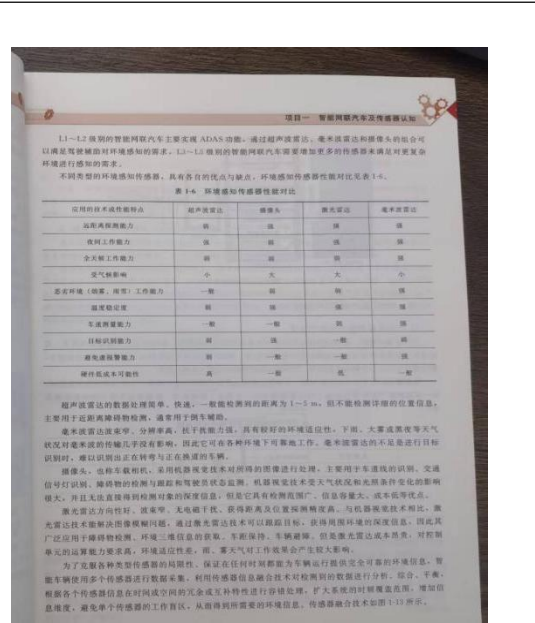 项目一 智能网联汽车及传感器认知
L1～L2 级别的智能网联汽车主要实现 ADAS 功能，通过超声波雷达、毫米波雷达和摄像头的组合可
以满足驾驶辅助对环境感知的需求。L3～L5 级别的智能网联汽车需要增加更多的传感器来满足对更复杂
环境进行感知的需求。
不同类型的环境感知传感器，具有各自的优点与缺点。环境感知传感器性能对比见表 1-6。
表 1-6 环境感知传感器性能对比
应用的技术或性能特点 超声波雷达 摄像头 激光雷达 毫米波雷达
远距离探测能力 弱 强 强 强
夜间工作能力 强 弱 强 强
全天候工作能力 弱 弱 弱 强
受气候影响 小 大 大 小
恶劣环境（烟雾、雨雪）工作能力 一般 弱 弱 强
温度稳定度 弱 强 强 强
车速测量能力 一般 一般 弱 强
目标识别能力 弱 强 一般 弱
避免虚报警能力 弱 一般 一般 强
硬件低成本可能性 高 一般 低 一般
超声波雷达的数据处理简单、快速，一般能检测到的距离为 1～5 m，但不能检测详细的位置信息，
主要用于近距离障碍物检测，通常用于倒车辅助。
毫米波雷达波束窄、分辨率高，抗干扰能力强，具有较好的环境适应性，下雨、大雾或黑夜等天气
状况对毫米波的传输几乎没有影响，因此它可在各种环境下可靠地工作。毫米波雷达的不足是进行目标
识别时，难以识别出正在转弯与正在换道的车辆。
摄像头，也称车载相机，采用机器视觉技术对所得的图像进行处理，主要用于车道线的识别、交通
信号灯识别、障碍物的检测与跟踪和驾驶员状态监测。机器视觉技术受天气状况和光照条件变化的影响
很大，并且无法直接得到检测对象的深度信息，但是它具有检测范围广、信息容量大、成本低等优点。
激光雷达方向性好、波束窄、无电磁干扰、获得距离及位置探测精度高。与机器视觉技术相比，激
光雷达技术能解决图像模糊问题，通过激光雷达技术可以跟踪目标，获得周围环境的深度信息，因此其
广泛应用于障碍物检测、环境三维信息的获取、车距保持、车辆避障。但是激光雷达成本昂贵，对控制
单元的运算能力要求高，环境适应性差，雨、雾天气对工作效果会产生较大影响。
为了克服各种类型传感器的局限性，保证在任何时刻都能为车辆运行提供完全可靠的环境信息，智
能车辆使用多个传感器进行数据采集，利用传感器信息融合技术对检测到的数据进行分析、综合、平衡，
根据各个传感器信息在时间或空间的冗余或互补特性进行容错处理，扩大系统的时频覆盖范围，增加信
息维度，避免单个传感器的工作盲区，从而得到所需要的环境信息。传感器融合技术如图 1-15 所示。